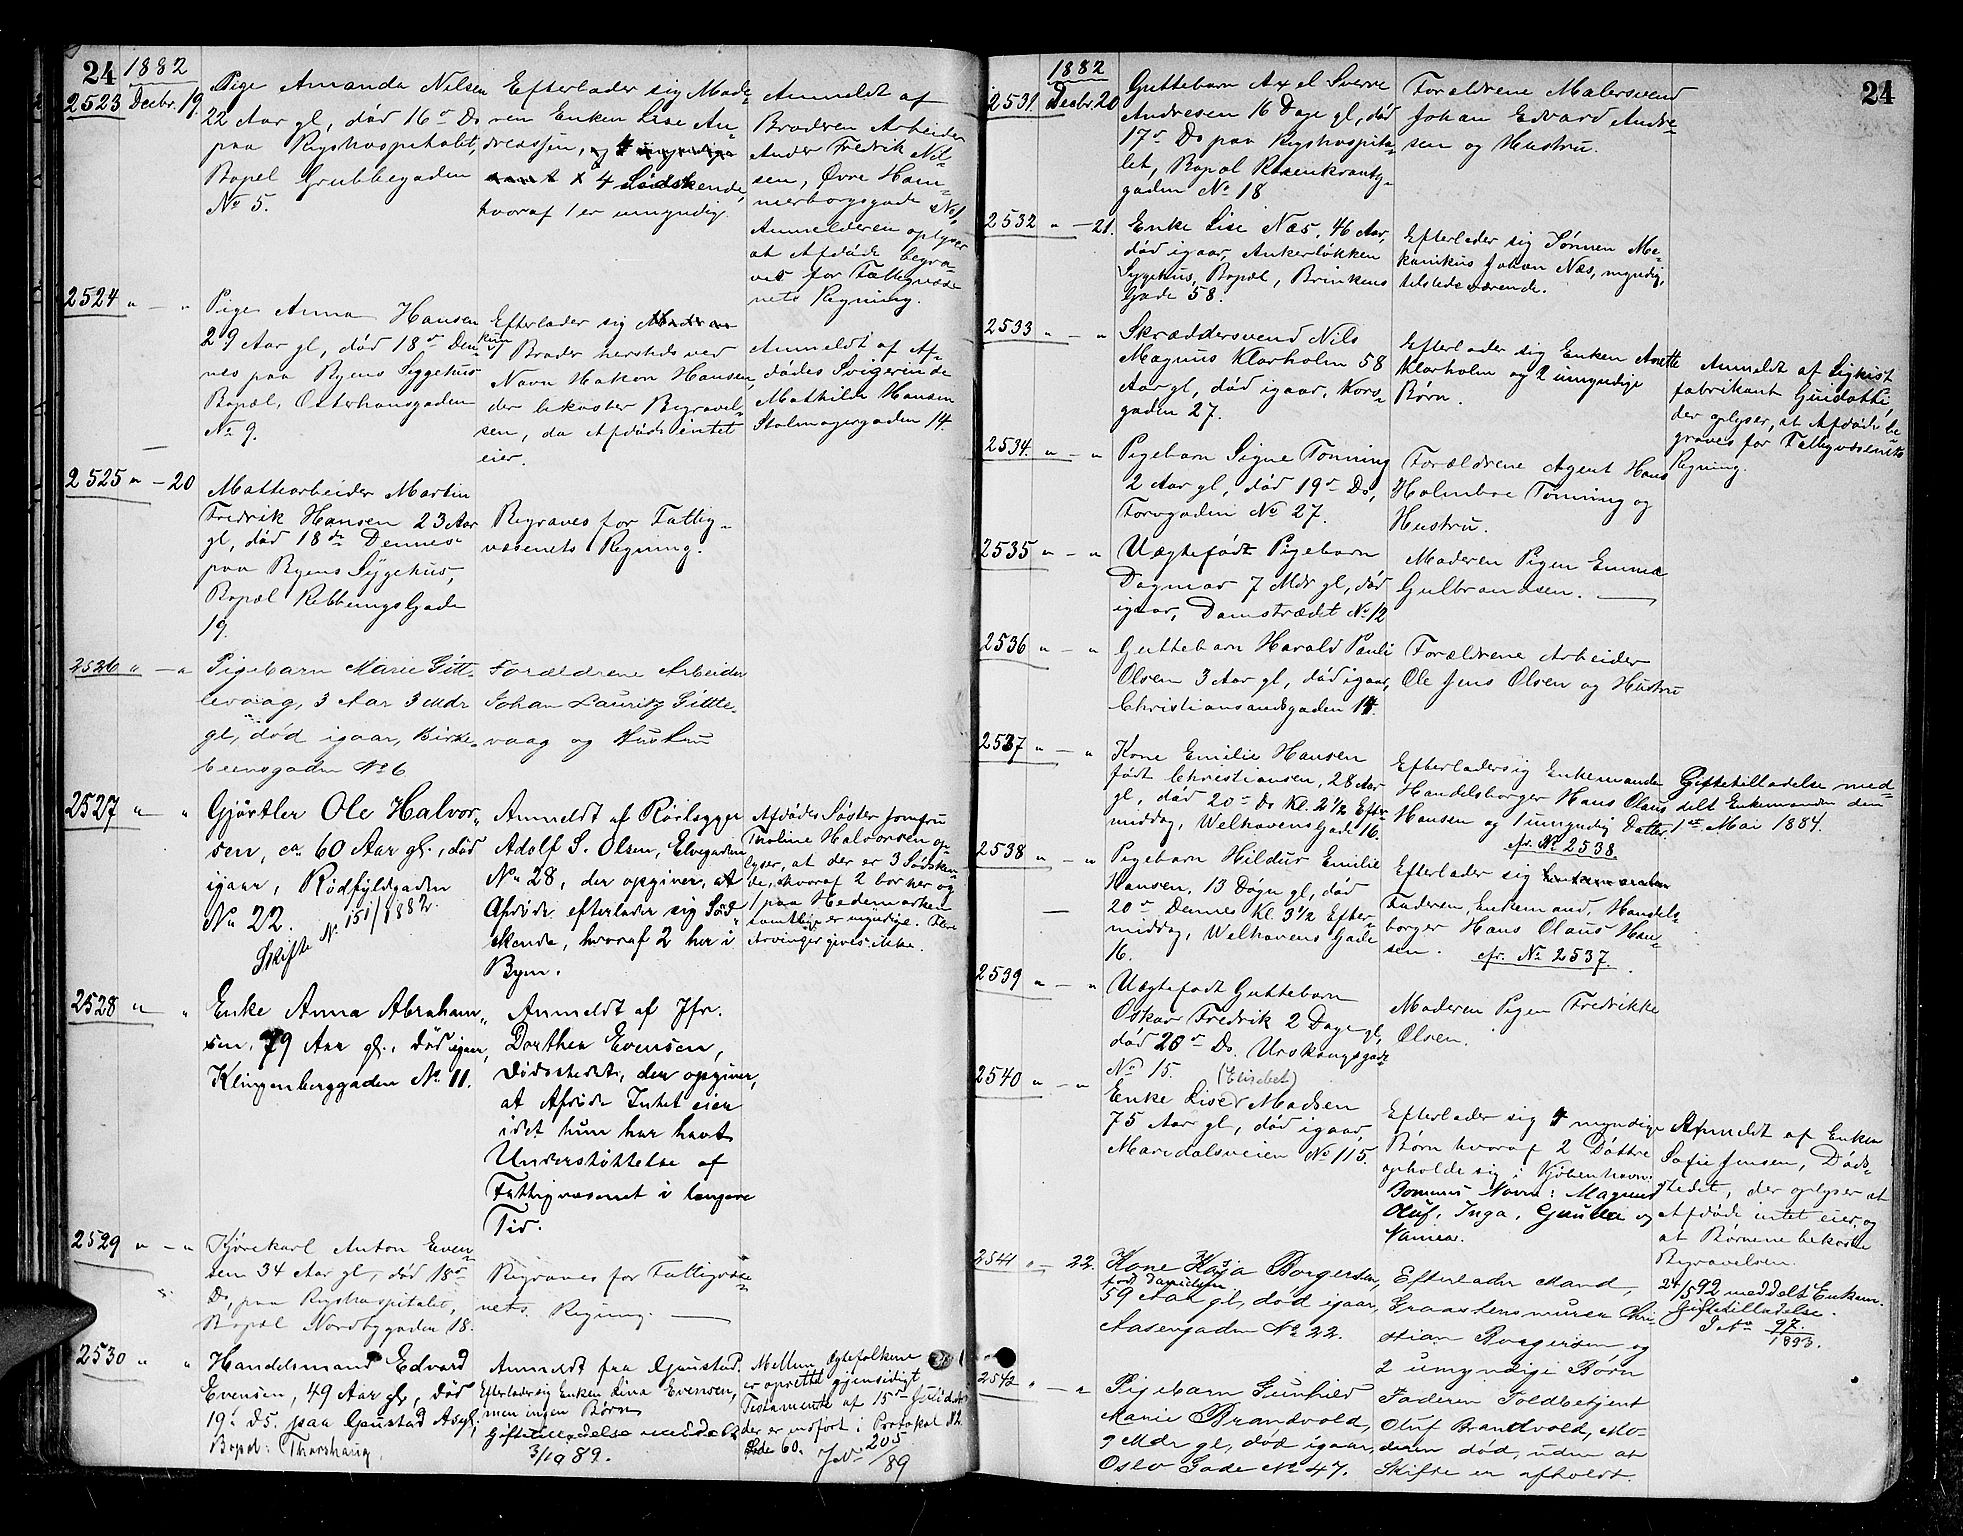 24
1882
2523 Decbr. 19.
Pige Amanda Nilsen
22 Aar gl, död 16de Ds
paa Rigshospitalet,
Bopæl Grubbegaden
No 5.
Efterlader sig Mode-
ren Enken Lise An-
dreassen, og 4 umyndige
samt 4 Södskende,
hvoraf 1 er umyndig.
Anmeldt af
Broderen Arbeider
Ander Fredrik Nil-
sen, Øvre Ham-
merborgsgade No 1,
Anmelderen oplyser
at Afdöde begra-
ves for Fattigvæse-
nets Regning.
2524 " — "
Pige Anna Hansen
29 Aar gl, död 18de Den-
nes paa Byens Sygehus
Bopæl, Osterhausgaden
No 9.
Efterlader sig Moderen
kun 1 Broder herstids ved
Navn Hakon Hansen,
der bekoster Begravel-
sen, da Afdöde intet
eier.
Anmeldt af Af-
dödes Svigerinde
Mathilde Hansen
Stolmagergaden 14.
2525 " — 20
Mattearbeider Martin
Fredrik Hansen 23 Aar
gl, död 18de Dennes
paa Byens Sygehus,
Bopæl Rebbungsgade
19.
Begraves for Fattig-
væsenets Regning.
2526 " — "
Pigebarn Marie Gitt-
levaag, 3 Aar 3 Mdr
gl, död igaar, Birke-
beensgaden No 6
Forældrene Arbeider
Johan Lauritz Gittle-
vaag og Hustru
2527 " "
Gjörtler Ole Halvor-
sen, ca. 60 Aar gl., död
igaar, Rödfyldgaden
No 22.
Skifte No 151/1882.
Anmeldt af Rörlægger
Adolf S. Olsen, Elvegaden
No 28, der opgiver, at
Afdöde efterlader sig Söd-
skende, hvoraf 2 her i
Byen.
Afdödes Söster Jomfru
Tholine Halvorsen op-
lyser, at der er 3 Södsken-
de, hvoraf 2 bor her og
1 paa Hedemarken
samtlige er myndige. Flere
Arvinger gives ikke.
2528 " "
Enke Anna Abraham-
sen, 79 Aar gl., död igaar,
Klingenberggaden No 11.
Anmeldt af Jfr.
Dorthea Evensen,
Dödsstedet, der opgiver,
at Afdöde Intet eier
idet hun har havt
Understöttelse af
Fattigvæsenet i længere
Tid.
2529 " — "
Kjörekarl Anton Even-
sen 34 Aar gl, död 18de
Ds, paa Rigshospitalet,
Bopæl Nordbygaden 18.
Begraves for Fattigvæse-
nets Regning.
2530 " "
Handelsmand Edvard
Evensen, 49 Aar gl, död
19de ds. paa Gaustad Asyl,
Bopæl: Thorshaug.
Anmeldt fra Gaustad.
Efterlader sig Enken Lina Evensen,
men ingen Börn
Giftetilladelse meddelt
3/10 89.
Mellem Ægtefolkene
er oprettet gjensidigt
Testamente af 15de Juli
der er indfört i Protokol No 2.
Side 60. JNo 205/89
24
1882
2531. Decbr. 20
Guttebarn Axel Sverre
Andresen 16 Dage gl, död
17de Ds paa Rigshospita-
let, Bopæl Rosenkrantz-
gaden No 18
Forældrene Malersvend
Johan Edvard Andre-
sen og Hustru.
2532 " — 21.
Enke Lise Næs, 46 Aar,
död igaar, Ankerlökken
Sygehus, Bopæl, Brinkens
Gade 58.
Efterlader sig Sönnen Me-
kanikus Johan Næs, myndig,
tilstedeværende.
2533 " — "
Skræddersvend Nils
Magnus Klarholm 58
Aar gl, död igaar, Kors-
gaden 27.
Efterlader sig Enken Anette
Klarholm og 2 umyndige
Börn.
Anmeldt af Ligkist-
fabrikant Guidotti,
der oplyser, at Afdöde be-
graves for Fattigvæsenets
Regning.
2534. " — "
Pigebarn Signe Tonning
2 Aar gl, död 19de Ds,
Torvgaden No 27.
Forældrene Agent Hans
Holmboe Tonning og
Hustru.
2535 " — "
Uægtefödt Pigebarn
Dagmar 7 Mdr gl, död
igaar, Damstrædet No 12
Moderen Pigen Emma
Gulbrandsen.
2536 " — "
Guttebarn Harald Pauli
Olsen 3 Aar gl, död igaar,
Christiansandsgaden 14.
Forældrene Arbeider
Ole Jens Olsen og Hustru
2537 " — "
Kone Emilie Hansen
födt Christiansen, 28 Aar
gl, död 20de Ds Kl. 2 1/2 Efter-
middag, Welhavens Gade 16.
Efterlader sig Enkemanden
Handelsborger Hans Olaus
Hansen og 1 umyndig Datter.
cfr. No 2538.
Giftetilladelse med-
delt Enkemanden den
1ste Mai 1884.
2538 " — "
Pigebarn Hildur Emilie
Hansen, 13 Dögn gl, död
20de Dennes Kl. 3 1/2 Efter-
middag, Welhavens Gade
16.
Efterlader sig
Faderen, Enkemand, Handels-
borger Hans Olaus Han-
sen. cfr. No 2537.
2539 " — "
Uægtefödt Guttebarn
Oskar Fredrik 2 Dage gl,
död 20de Ds. Urskougsgade
No 15.
Moderen Pigen Fredrikke
Olsen.
2540 " — "
(Elisebet)
Enke Lise Madsen
75 Aar gl, död igaar,
Maridalsveien No 115.
Efterlader sig 4 myndige
Börn hvoraf 2 Döttre
opholde sig i Kjöbenhavn.
Börnenes Navne: Magnus
Oluf, Inga, Gunda og
Namea.
Anmeldt af Enken
Sofie Jensen, Döds-
stedet, der oplyser at
Afdöde intet eier, og
at Börnene bekoste
Begravelsen.
2541 " — 22.
Kone Kaja Borgersen,
född Danielsen
59 Aar gl, död igaar,
Aasengaden No 22.
Efterlader Mand,
Graastensmurer Chri-
stian Borgersen og
2 umyndige Börn
24/5 92 meddelt Enkem.
Giftetilladelse.
J No 97/1893.
2542 " — "
Pigebarn Gunhild
Marie Brandvold,
9 Mdr gl, död igaar,
Oslo Gade No 47.
Faderen Toldbetjent
Oluf Brandvold, Mo-
deren död, uden at
Skifte er afholdt.